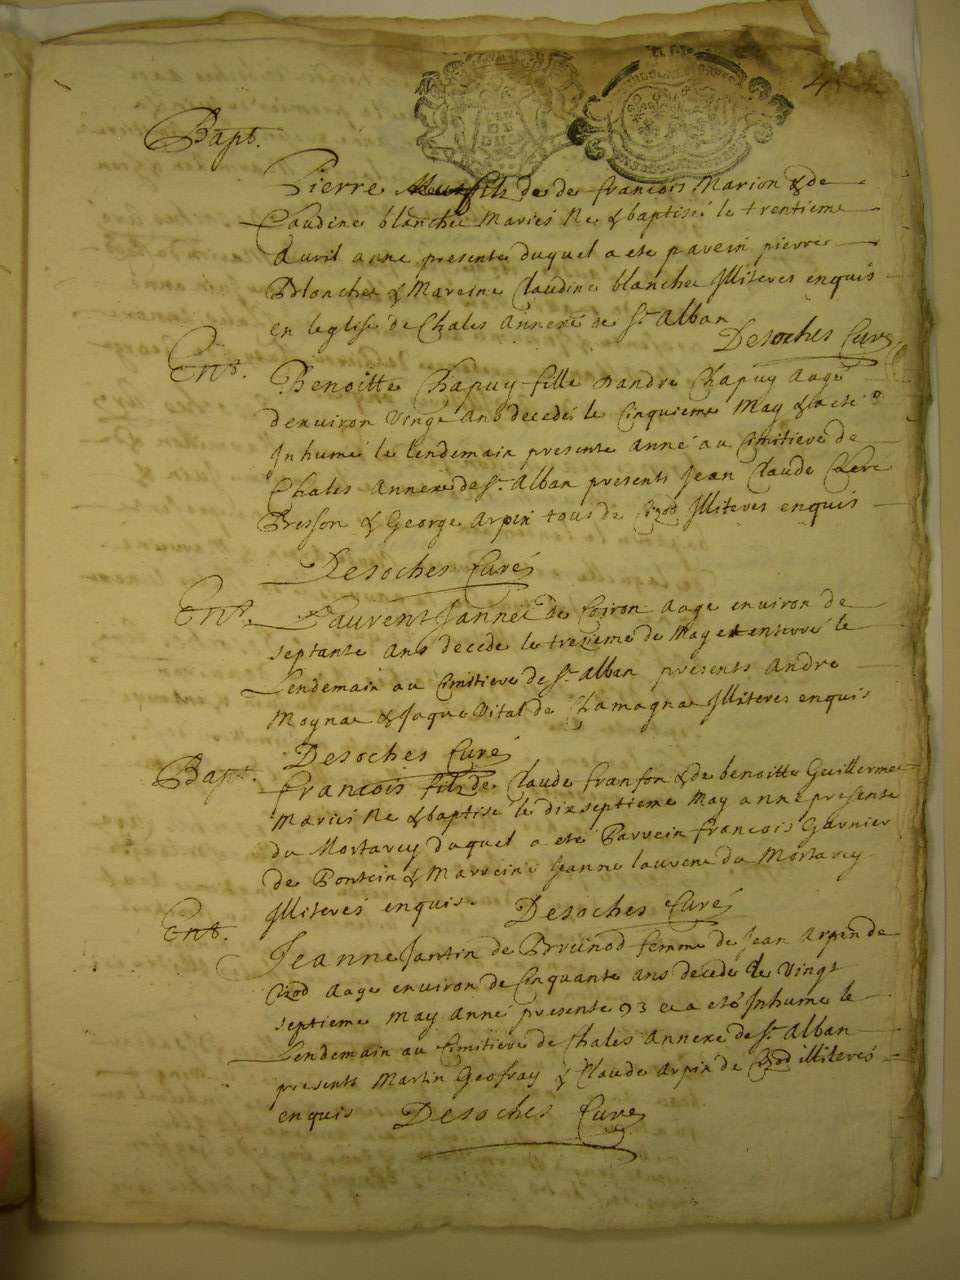 4
Bapt.
Pierre fils de de francois Marion & de
Claudine blanche Mariés Né & baptisé le trentieme
Avril anné presente duquel a eté parein pierre
Blanche & Mareine Claudine blanche Illiteres enquis
en leglise de Chales Annexe de St Alban
Desoches Curé
Ent.
Benoitte Chapuy fille dandre Chapuy Aagé
denviron Vingt ans decedé le Cinquieme May & a eté
Inhumé le lendemain presente anné au Cimitiere de
Chales Annexe de St Alban presents Jean Claude
Bresson & George Arpin tous de Cizod Illiteres enquis
Desoches Curé
Ent.
Laurent Jannet de Coiron Aage environ de
septante ans decede le trezieme de May et enterré le
Lendemain au Cimitiere de St Alban presents Andre
Moynae & Jaque Vital de Chamagnae Illiteres enquis
Desoches Curé
Bapt.
francois fils de Claude franson & de benoitte Guillerme
Mariés Né & baptisé le dixseptieme May anné presente
du Mortarey duquel a eté Parrein francois Garnier
de Pontein & Marreine Jeanne laurene du Mortarey
Illiteres enquis. Desoches Curé
Ent.
Jeanne Jantin de Breinod femme de Jean Arpin de
Cizod Aage environ de Cinquante ans decede le Vingt
septieme May anné presente 93 a eté Inhume le
Lendemain au Cimitiere de Chales Annexe de St Alban
presents Martin Geofray & Claude Arpin de Cizod illiteres
enquis Desoches Curé